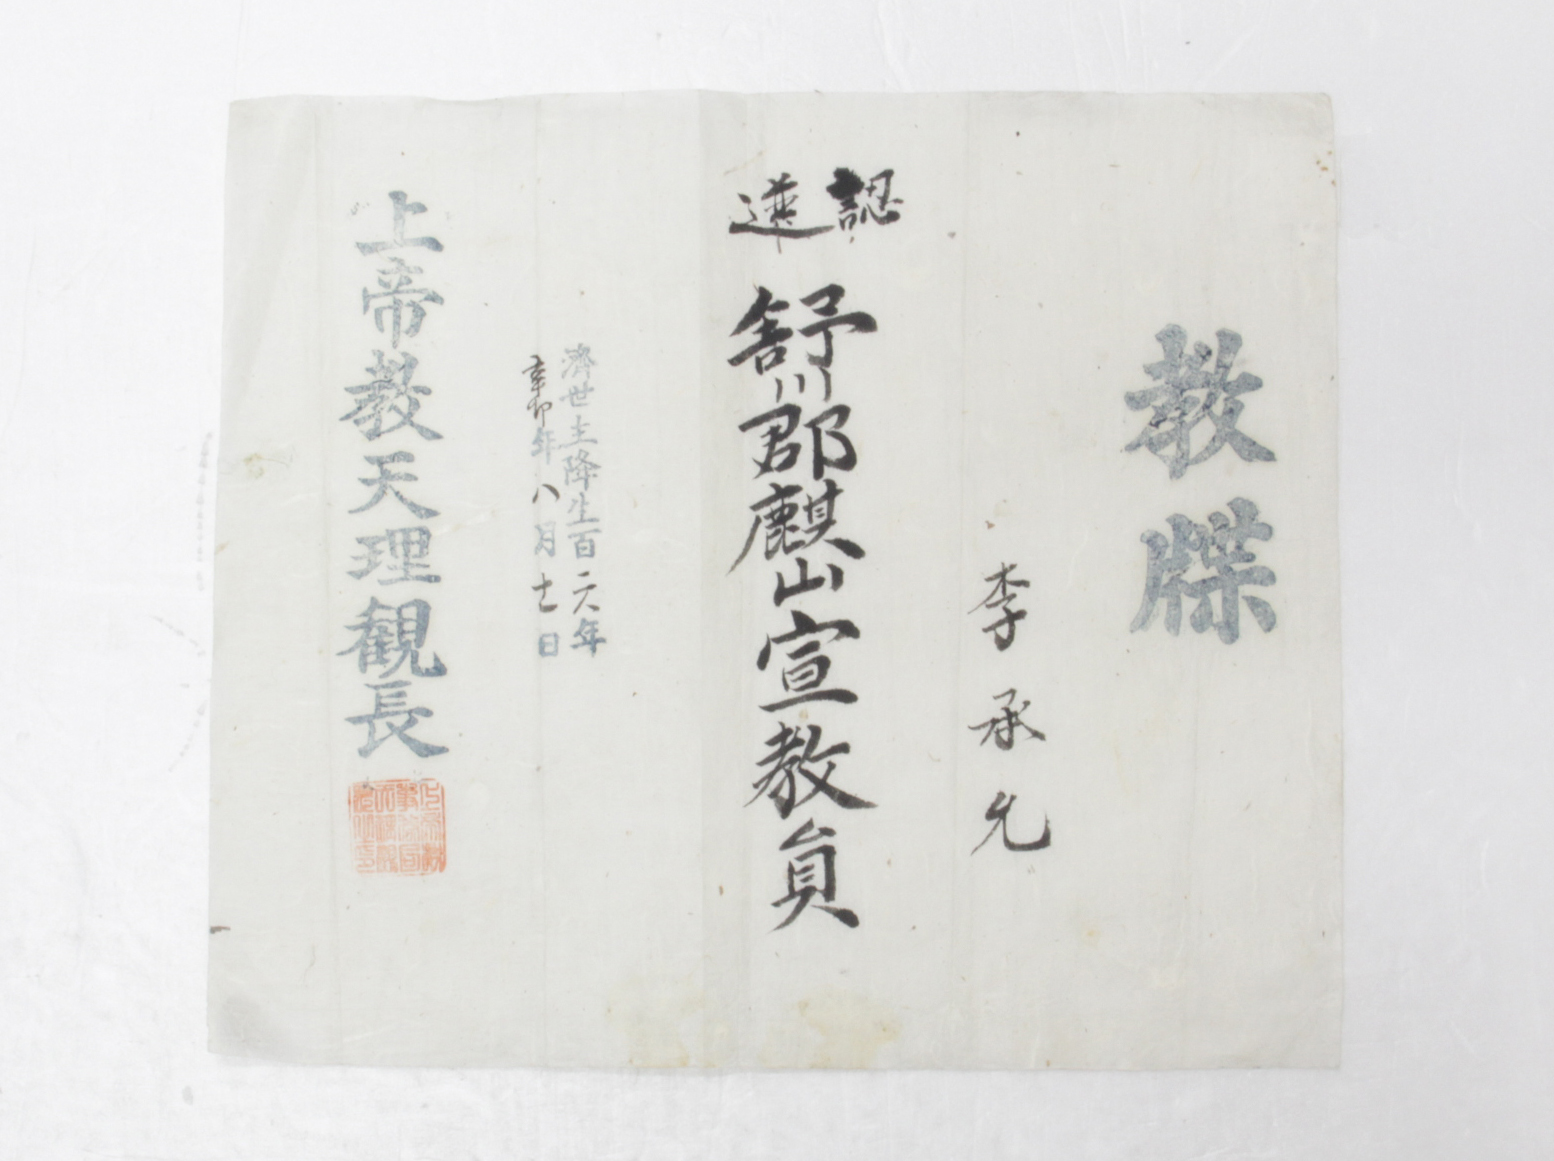 教牒
李承允
認
舒川郡麒山宣教員
濟世主降生百二六年
辛卯年八月十一日
上帝教天理観長